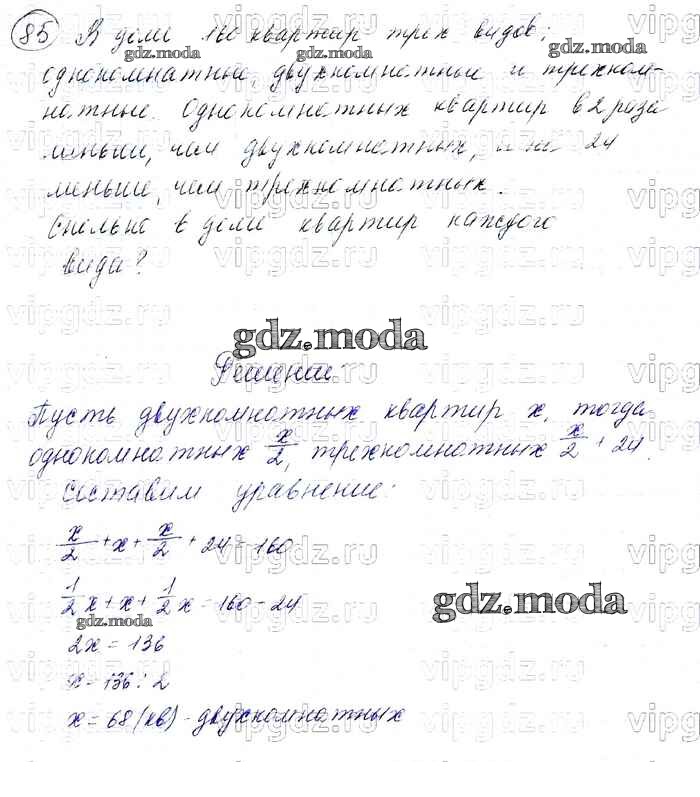 85 В доме 160 квартир трех видов:
gdz.moda gdz.moda
однокомнатные, двухкомнатные и трехком-
натные. Однокомнатных квартир в 2 раза
gdz.moda gdz.moda
меньше, чем двухкомнатных, и на 24
меньше, чем трехкомнатных.
Сколько в доме квартир каждого
вида?
vipgdz.ru
gdz.moda
Решение:
Пусть двухкомнатных квартир x, тогда
однокомнатных x/2, трехкомнатных x/2 + 24.
Составим уравнение:
x/2 + x + x/2 + 24 = 160
1/2x + x + 1/2x = 160 - 24
gdz.moda gdz.moda
2x = 136
x = 136 : 2
x = 68 (кв) - двухкомнатных